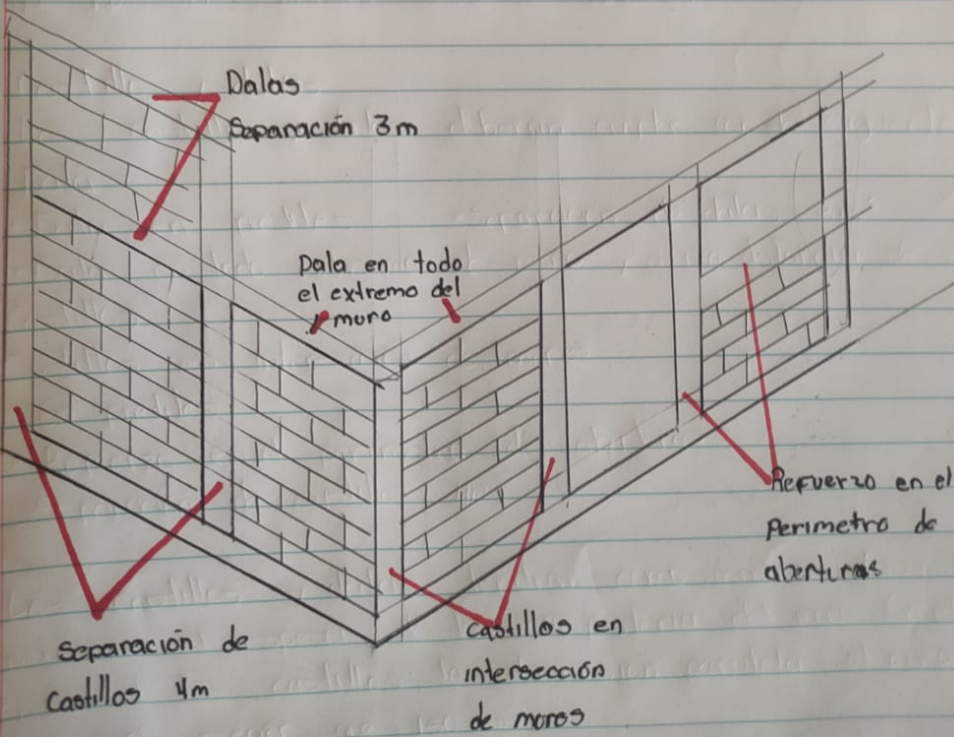 Dalas
Separación 3m
Dala en todo
el extremo del
muro
Refuerzo en el
Perimetro de
aberturas
Separación de
Castillos 4m
Castillos en
intersección
de muros